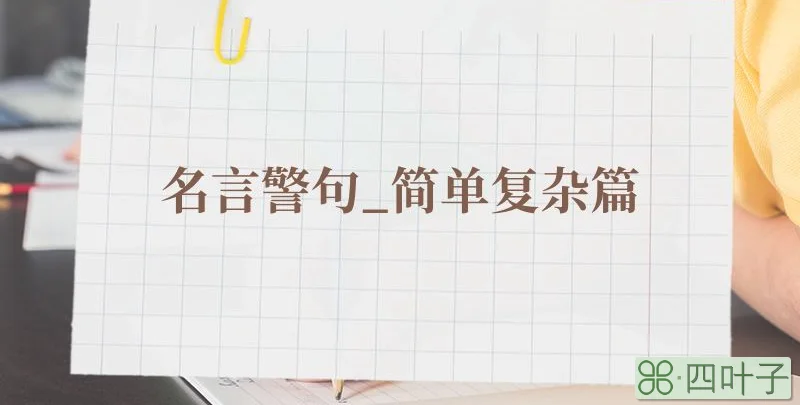 名言警句_简单复杂篇
四叶子